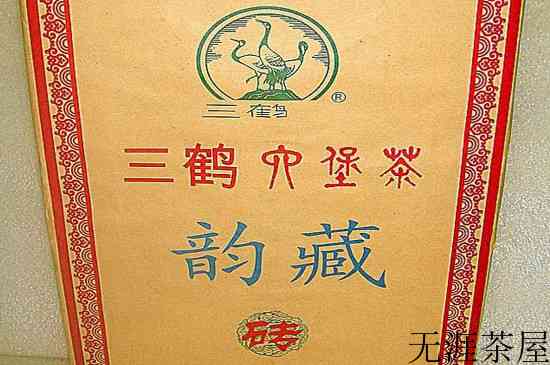 三鹤®
三鹤六堡茶
韵藏
砖
无涯茶屋